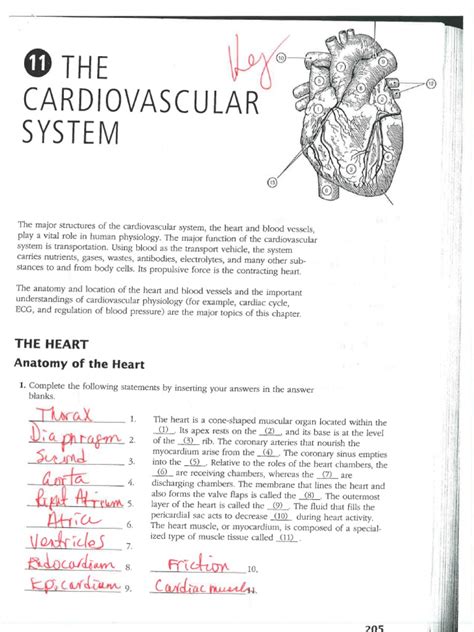 Key
11 THE
CARDIOVASCULAR
SYSTEM
The major structures of the cardiovascular system, the heart and blood vessels,
play a vital role in human physiology. The major function of the cardiovascular
system is transportation. Using blood as the transport vehicle, the system
carries nutrients, gases, wastes, antibodies, electrolytes, and many other sub-
stances to and from body cells. Its propulsive force is the contracting heart.
The anatomy and location of the heart and blood vessels and the important
understandings of cardiovascular physiology (for example, cardiac cycle,
ECG, and regulation of blood pressure) are the major topics of this chapter.
THE HEART
Anatomy of the Heart
1. Complete the following statements by inserting your answers in the answer
blanks.
Thorax 1.
Diaphragm 2.
Second 3.
Aorta 4.
Right Atrium 5.
Atria 6.
Ventricles 7.
Endocardium 8.
Epicardium 9.
The heart is a cone-shaped muscular organ located within the
(1). Its apex rests on the (2), and its base is at the level
of the (3) rib. The coronary arteries that nourish the
myocardium arise from the (4). The coronary sinus empties
into the (5). Relative to the roles of the heart chambers, the
(6) are receiving chambers, whereas the (7) are
discharging chambers. The membrane that lines the heart and
also forms the valve flaps is called the (8). The outermost
layer of the heart is called the (9). The fluid that fills the
pericardial sac acts to decrease (10) during heart activity.
The heart muscle, or myocardium, is composed of a special-
ized type of muscle tissue called (11).
Friction 10.
Cardiac muscle
205